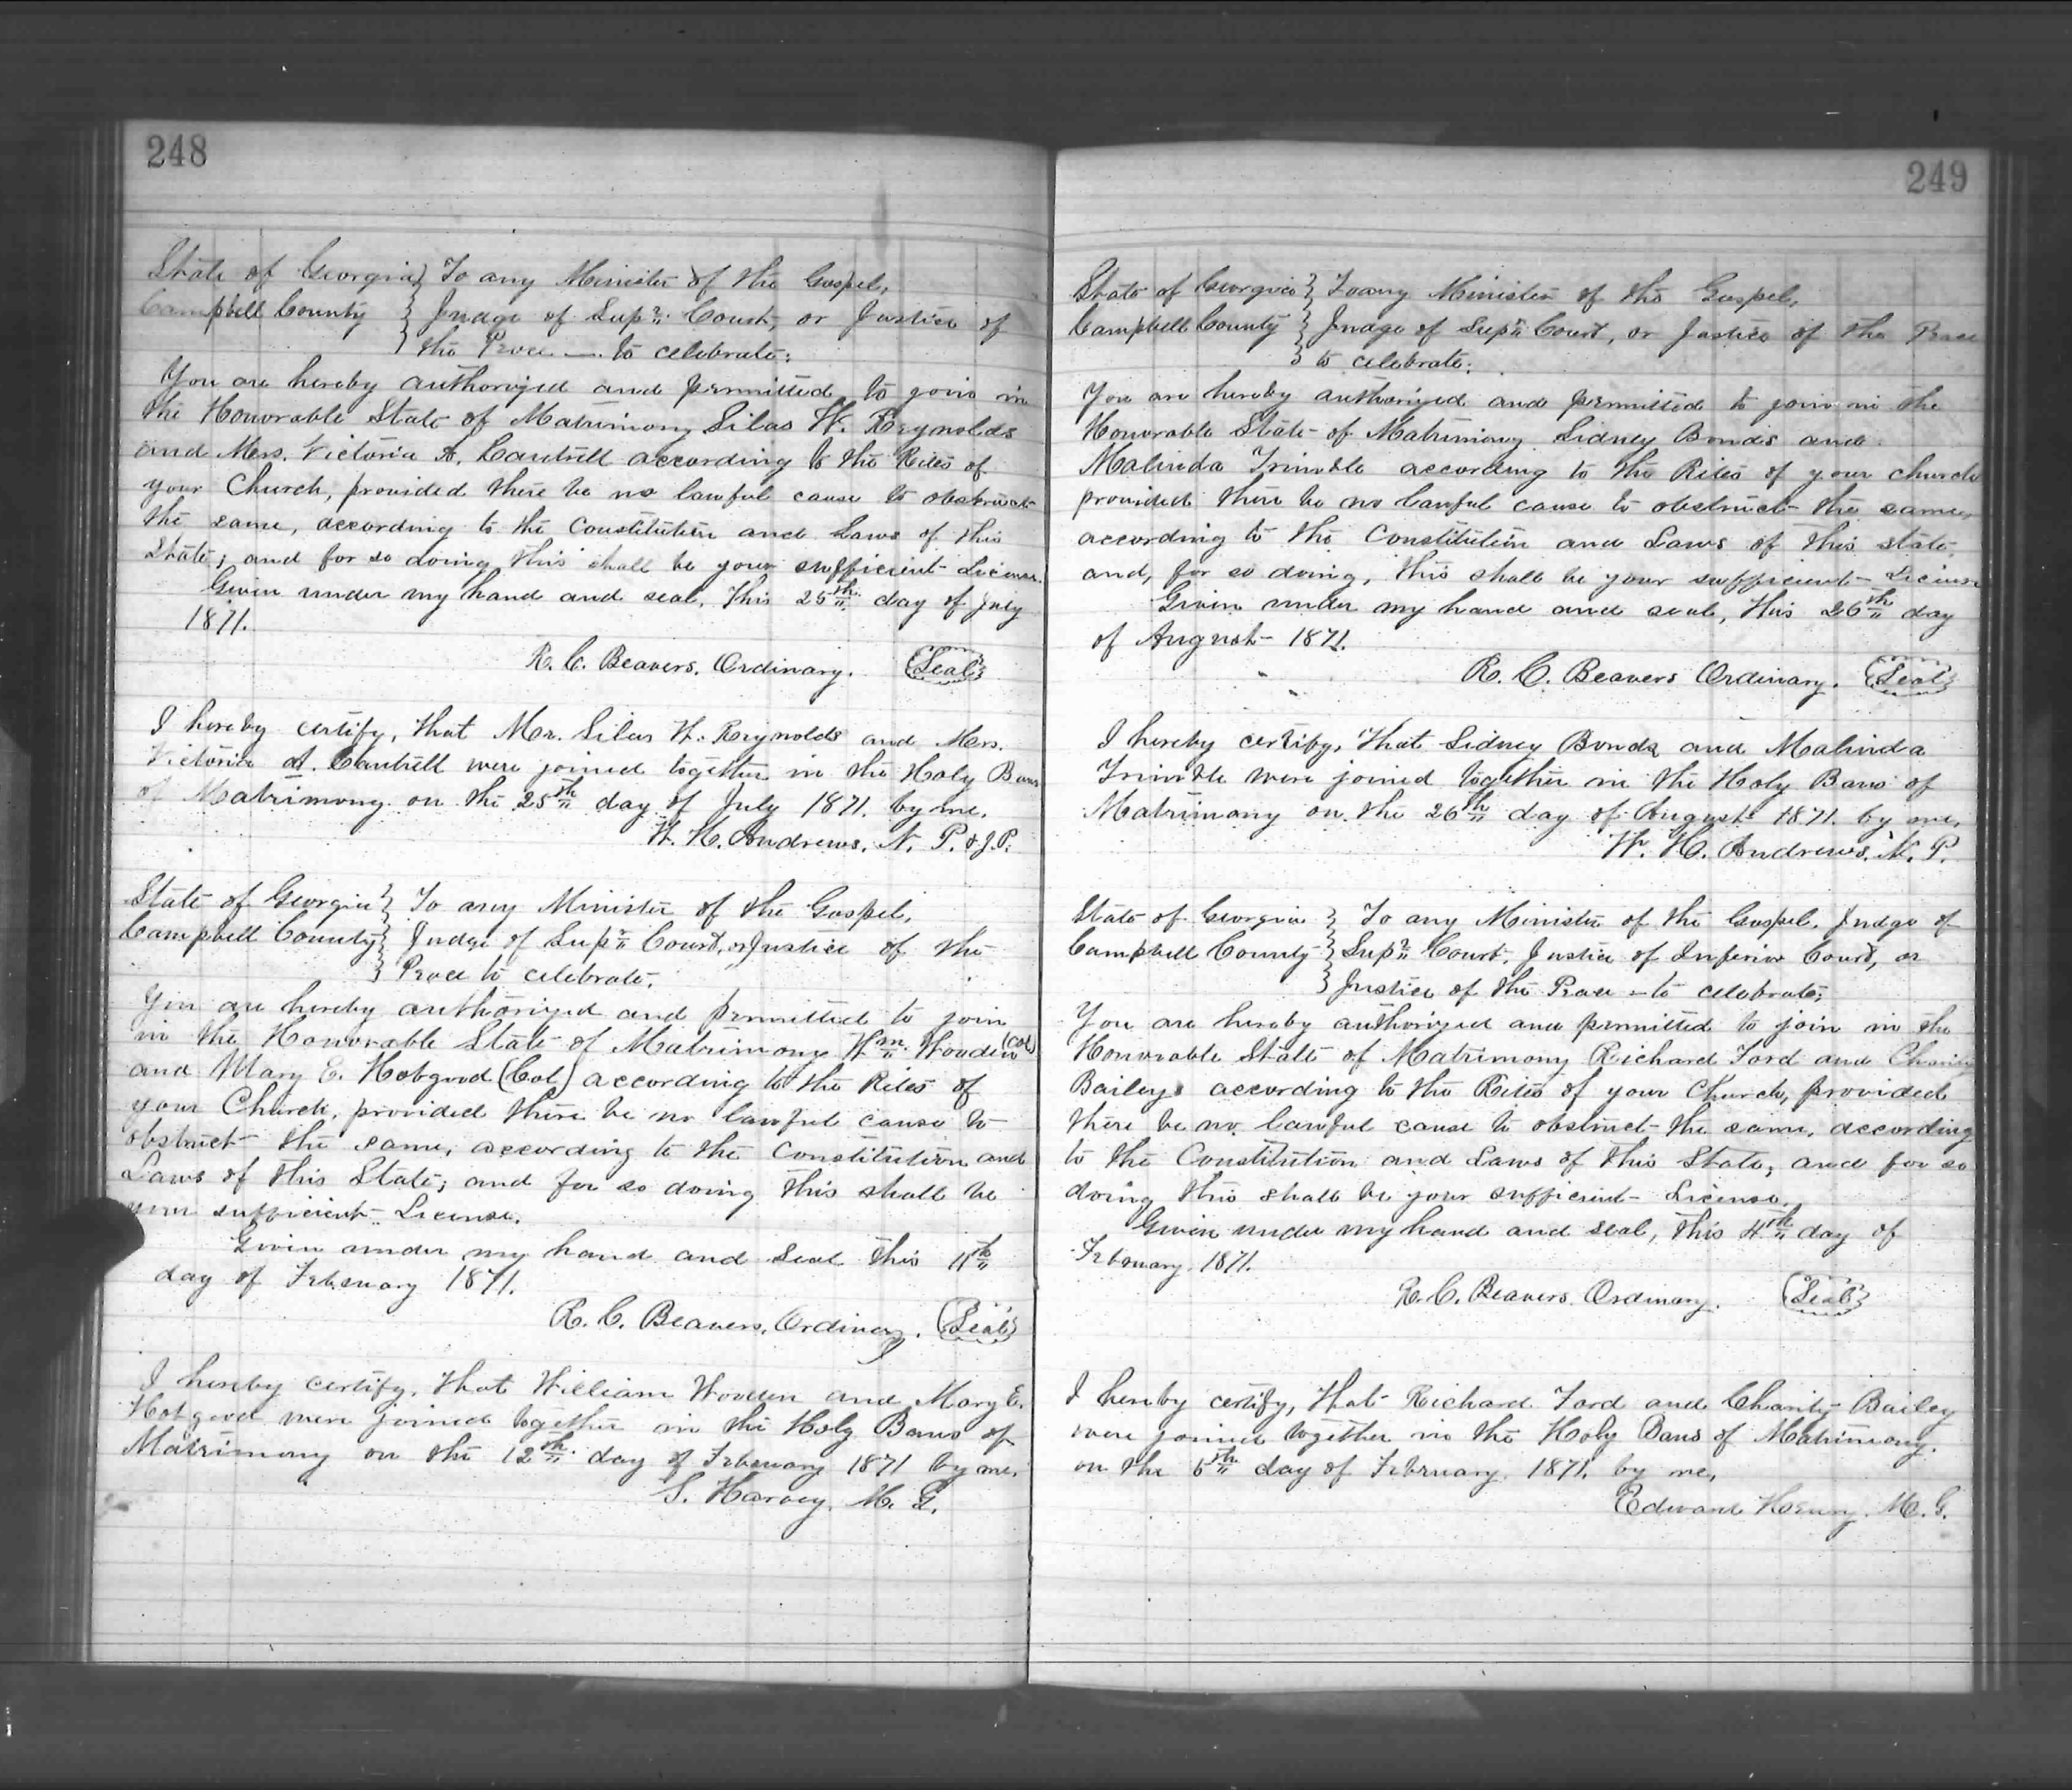 248
State of Georgia } To any Minister of the Gospel,
Campbell County } Judge of Supr. Court, or Justice of
} the Peace — to celebrate:
You are hereby authorized and permitted to join in
the Honorable State of Matrimony Silas W. Reynolds
and Mrs. Victoria A. Cantrell according to the Rites of
your Church, provided there be no lawful cause to obstruct
the same, according to the Constitution and Laws of this
State; and for so doing this shall be your sufficient License.
Given under my hand and seal, this 25th day of July
1871.
R. C. Beavers, Ordinary. (Seal)
I hereby certify, that Mr. Silas W. Reynolds and Mrs.
Victoria A. Cantrell were joined together in the Holy Bans
of Matrimony on the 25th day of July 1871. by me,
W. H. Andrews, N. P. & J.P.
State of Georgia } To any Minister of the Gospel,
Campbell County } Judge of Supr. Court, or Justice of the
} Peace to celebrate.
You are hereby authorized and permitted to join
in the Honorable State of Matrimony Wm. Wooden (Col)
and Mary E. Hobgood (Col) according to the Rites of
your Church, provided there be no lawful cause to
obstruct the same, according to the Constitution and
Laws of this State; and for so doing this shall be
your sufficient License.
Given under my hand and seal this 11th
day of February 1871.
R. C. Beavers, Ordinary. (Seal)
I hereby certify, that William Wooden and Mary E.
Hobgood were joined together in the Holy Bans of
Matrimony on the 12th day of February 1871 by me,
S. Harvey, M. G.
249
State of Georgia } To any Minister of the Gospel,
Campbell County } Judge of Supr. Court, or Justice of the Peace
} to celebrate:
You are hereby authorized and permitted to join in the
Honorable State of Matrimony Sidney Bonds and
Malinda Trimble according to the Rites of your church
provided there be no lawful cause to obstruct the same,
according to the Constitution and Laws of this state,
and, for so doing, this shall be your sufficient License
Given under my hand and seal, this 26th day
of August 1871.
R. C. Beavers Ordinary. (Seal)
I hereby certify, that Sidney Bonds and Malinda
Trimble were joined together in the Holy Bans of
Matrimony on the 26th day of August 1871. by me,
W. H. Andrews, N. P.
State of Georgia } To any Minister of the Gospel, Judge of
Campbell County } Supr. Court, Justice of Inferior Court, or
} Justice of the Peace — to celebrate;
You are hereby authorized and permitted to join in the
Honorable State of Matrimony Richard Ford and Charity
Bailey according to the Rites of your Church, provided
there be no lawful cause to obstruct the same, according
to the Constitution and Laws of this State; and for so
doing this shall be your sufficient License.
Given under my hand and seal, this 4th day of
February 1871.
R. C. Beavers Ordinary. (Seal)
I hereby certify, that Richard Ford and Charity Bailey
were joined together in the Holy Bans of Matrimony.
on the 5th day of February 1871. by me,
Edward Henry, M. G.